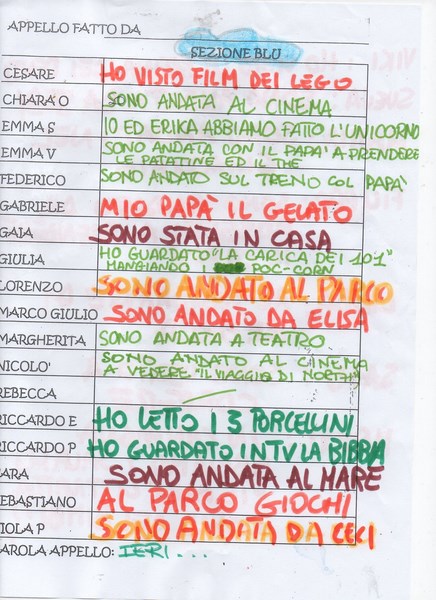 APPELLO FATTO DA
SEZIONE BLU
CESARE HO VISTO FILM DEI LEGO
CHIARA O SONO ANDATA AL CINEMA
EMMA S IO ED ERIKA ABBIAMO FATTO L'UNICORNO
EMMA V SONO ANDATA CON IL PAPA' A PRENDERE
LE PATATINE ED IL THE
FEDERICO SONO ANDATO SUL TRENO COL PAPÀ
GABRIELE MIO PAPÀ IL GELATO
GAIA SONO STATA IN CASA
GIULIA HO GUARDATO "LA CARICA DEI 101"
MANGIANDO I POC-CORN
LORENZO SONO ANDATO AL PARCO
MARCO GIULIO SONO ANDATO DA ELISA
MARGHERITA SONO ANDATA A TEATRO
NICOLO' SONO ANDATO AL CINEMA
A VEDERE "IL VIAGGIO DI
REBECCA
RICCARDO E HO LETTO I 3 PORCELLINI
RICCARDO P HO GUARDATO IN TV LA BIBBIA
ARA SONO ANDATA AL MARE
EBASTIANO AL PARCO GIOCHI
IOLA P SONO ANDATA DA CECI
AROLA APPELLO: IERI...